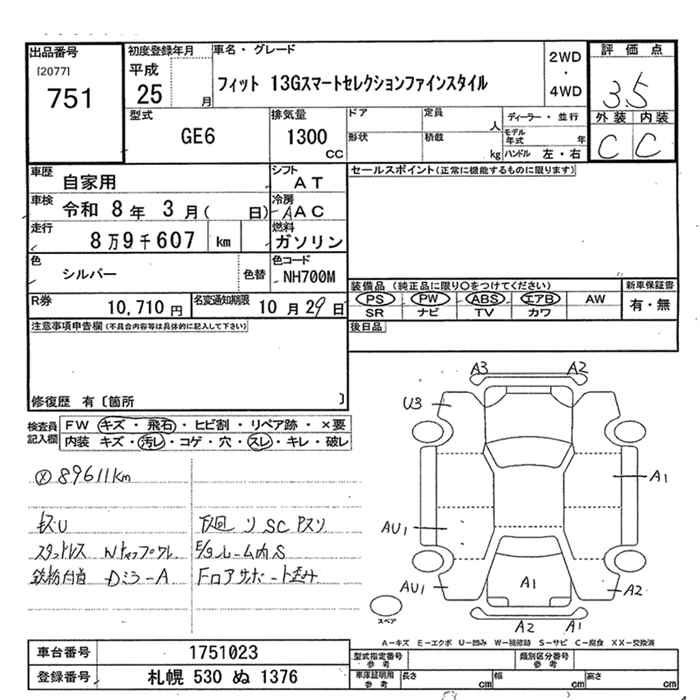 出品番号
[2077]
751
初度登録年月
平成
25 月
車名・グレード
フィット 13Gスマートセレクションファインスタイル
2WD
・
4WD
評価点
3.5
外装 内装
C C
型式
GE6
排気量
1300
CC
ドア
定員
人
形状
積載
kg
ディーラー・並行
モデル年式 年
ハンドル 左・右
車歴
自家用
シフト
AT
車検
令和 8年 3月( 日)
冷房
AAC
走行
8万9千607 km
燃料
ガソリン
色
シルバー
色替
色コード
NH700M
R券
10,710 円
名変通知期限
10月29日
セールスポイント(正常に機能するものに限ります)
装備品 (純正品に限り○をつけてください)
新車保証書
PS PW ABS エアB AW
SR ナビ TV カワ
有・無
後日品
注意事項申告欄(不具合内容等は具体的に記入して下さい)
修復歴 有〔箇所 〕
検査員
記入欄
FW キズ・飛石・ヒビ割・リペア跡・×要
内装 キズ・汚レ・コゲ・穴・スレ・キレ・破レ
89611km
キズU
下廻リ SC Pスリ
スタッドレス
E/Gルーム内S
DミラーA
Fロアサポート歪み
A3 A2
U3
A1
AU1
AU1
A1
A2
A2 A1
スペア
A-キズ E-エクボ U-凹み W-補修跡 S-サビ C-腐食 XX-交換済
車台番号
1751023
登録番号
札幌 530 ぬ 1376
型式指定番号
参考
類別区分番号
参考
車庫証明用
参考
長さ cm
幅 cm
高さ cm